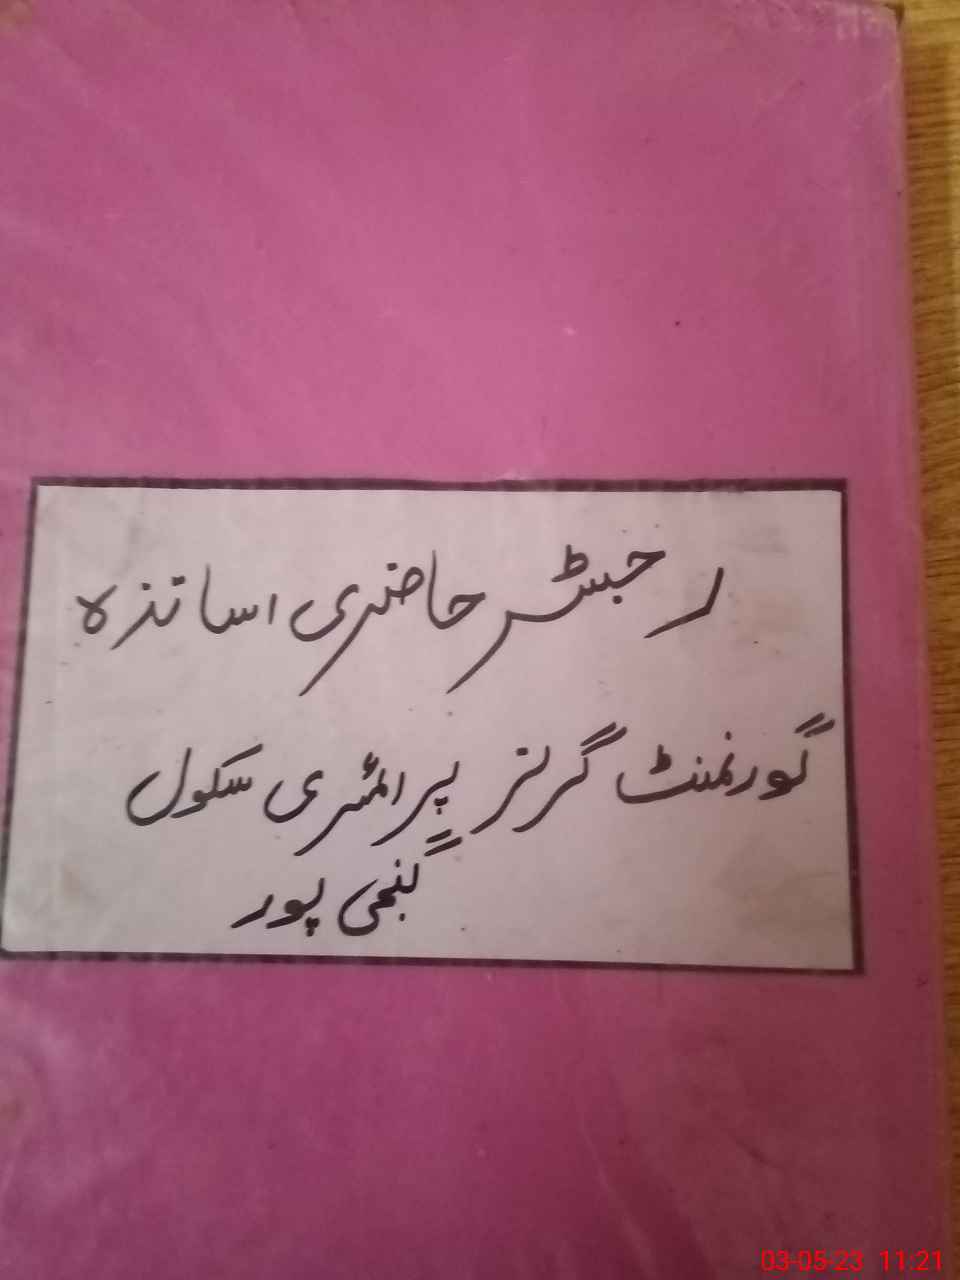 رجسٹر حاضری اساتذہ
گورنمنٹ گرلز پرائمری سکول
گنجی پور
03-05-23 11:21